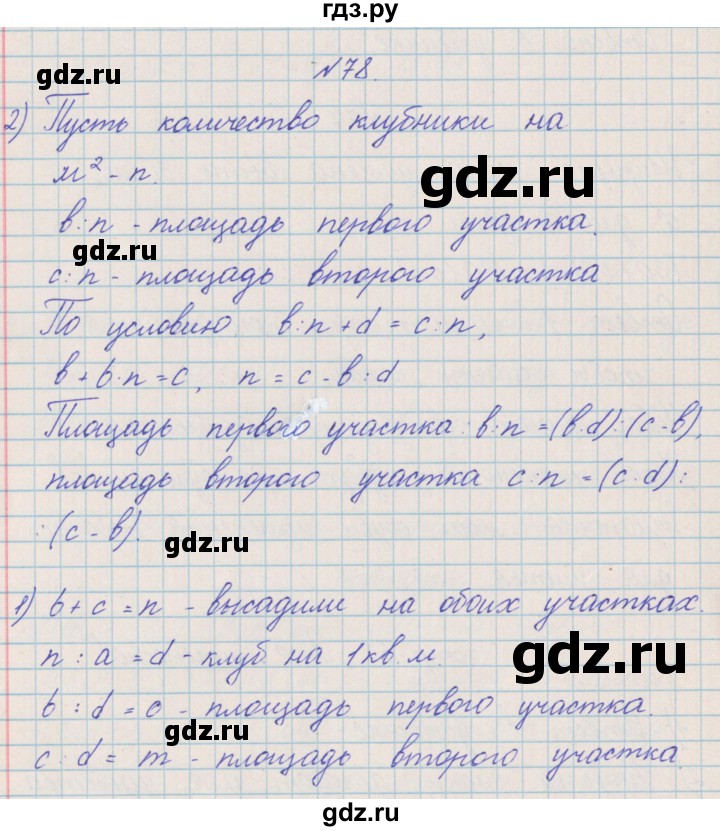 гдз.ру
gdz.ru
№78.
2) Пусть количество клубники на
м² - n.
gdz.ru
в:n - площадь первого участка.
gdz.ru
с:n - площадь второго участка
По условию в:n+d = c:n,
в + b·n = c, n = c - в : d
Площадь первого участка: в:n = (в·d):(c - в),
площадь второго участка с:n = (c·d):
:(c - в).
gdz.ru
1) b + c = n - высадили на обоих участках.
n : a = d - клуб на 1 кв. м.
gdz.ru
b : d = c - площадь первого участка.
gdz.ru
c : d = m - площадь второго участка.
gdz.ru